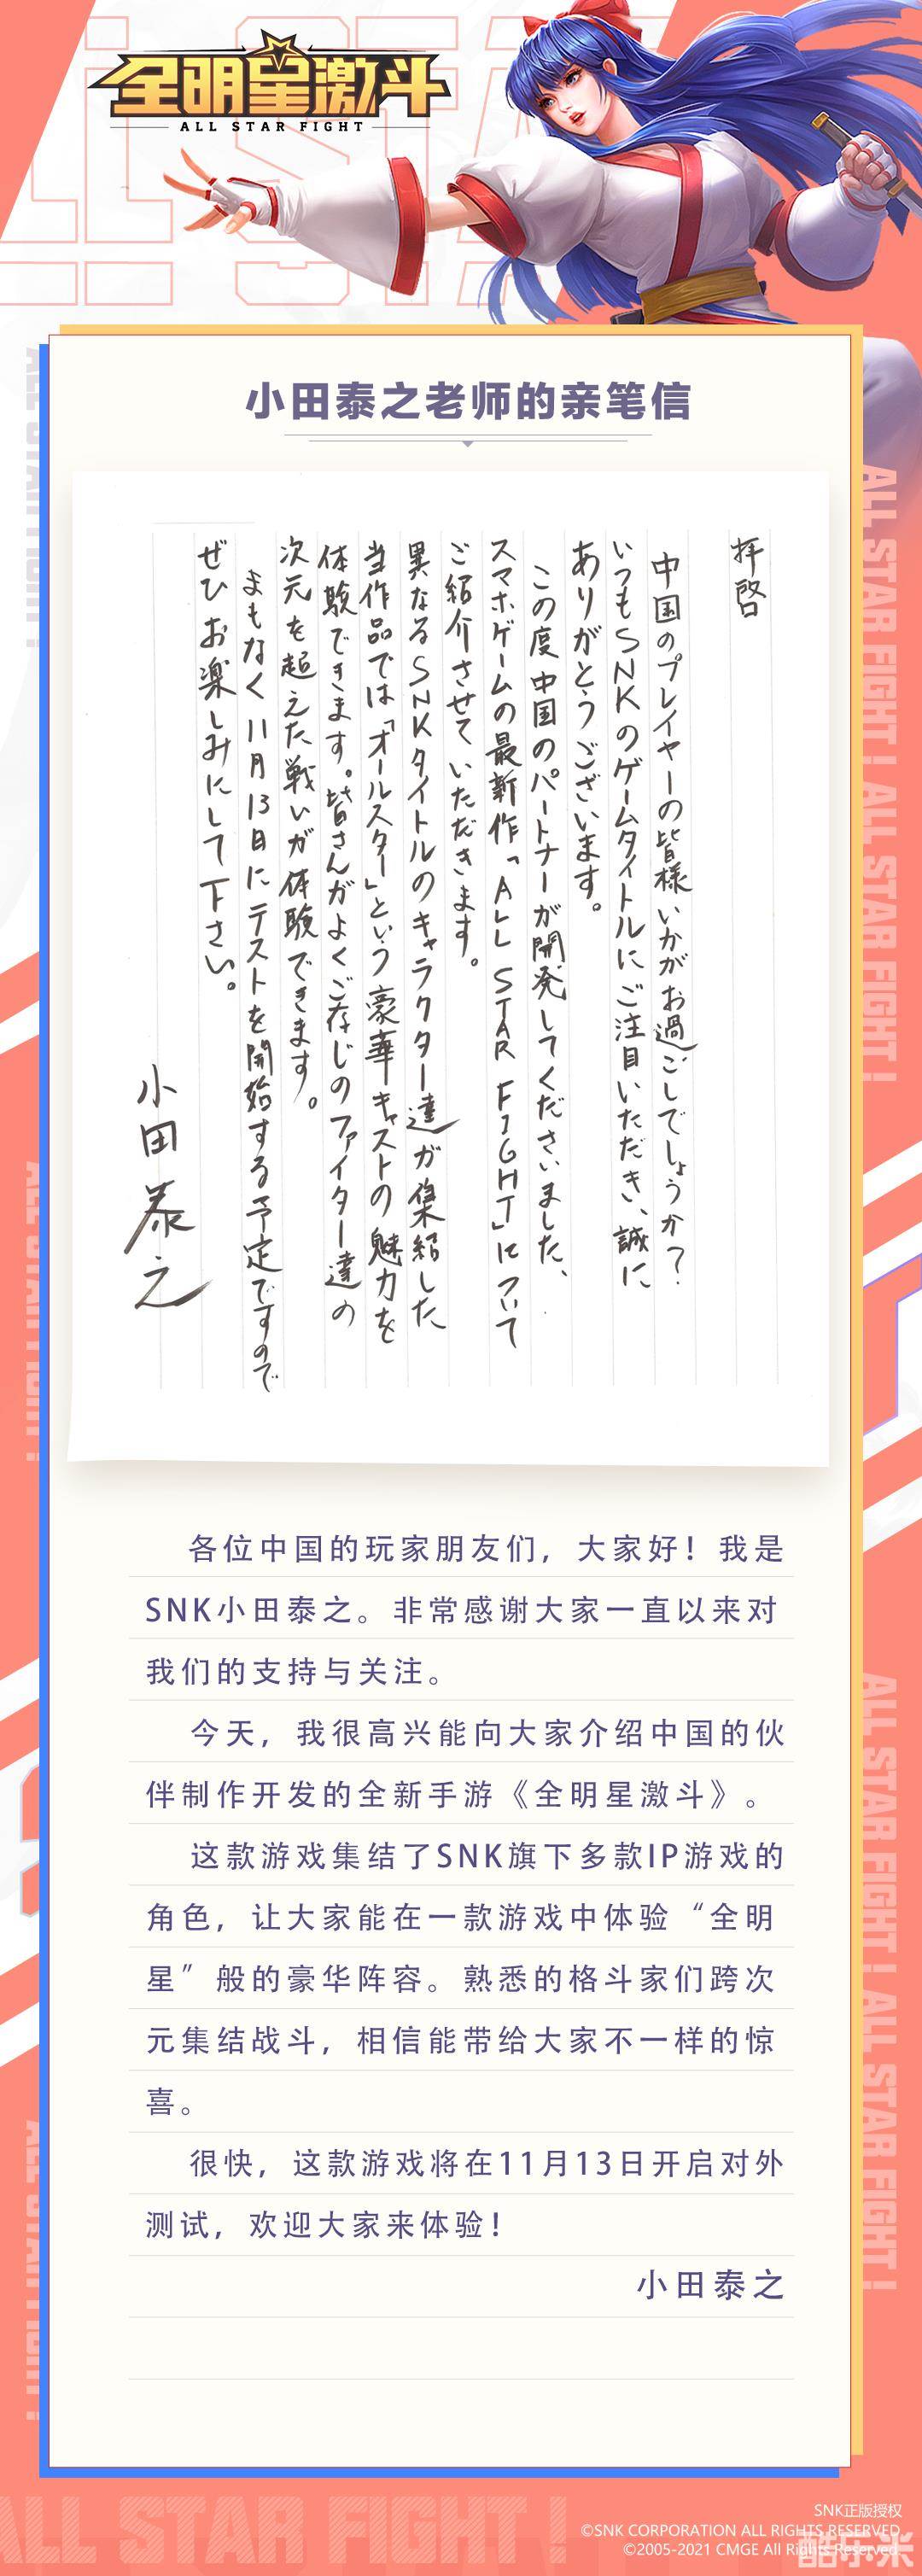 全明星激斗
ALL STAR FIGHT
小田泰之老师的亲笔信
拝啓
中国のプレイヤーの皆様いかがお過ごしでしょうか？
いつもSNKのゲームタイトルにご注目いただき、誠に
ありがとうございます。
この度中国のパートナーが開発してくださいました、
スマホゲームの最新作「ALL STAR FIGHT」について
ご紹介させていただきます。
異なるSNKタイトルのキャラクター達が集結した
当作品では「オールスター」という豪華キャストの魅力を
体験できます。皆さんがよくご存じのファイター達の
次元を超えた戦いが体験できます。
まもなく11月13日にテストを開始する予定ですので
ぜひお楽しみにして下さい。
小田泰之
各位中国的玩家朋友们，大家好！我是
SNK小田泰之。非常感谢大家一直以来对
我们的支持与关注。
今天，我很高兴能向大家介绍中国的伙
伴制作开发的全新手游《全明星激斗》。
这款游戏集结了SNK旗下多款IP游戏的
角色，让大家能在一款游戏中体验“全明
星”般的豪华阵容。熟悉的格斗家们跨次
元集结战斗，相信能带给大家不一样的惊
喜。
很快，这款游戏将在11月13日开启对外
测试，欢迎大家来体验！
小田泰之
ALL STAR FIGHT! ALL STAR FIGHT!
ALL STAR FIGHT! ALL STAR FIGHT!
ALL STAR FIGHT!
SNK正版授权
©SNK CORPORATION ALL RIGHTS RESERVED.
©2005-2021 CMGE All Rights Reserved.
酷乐米